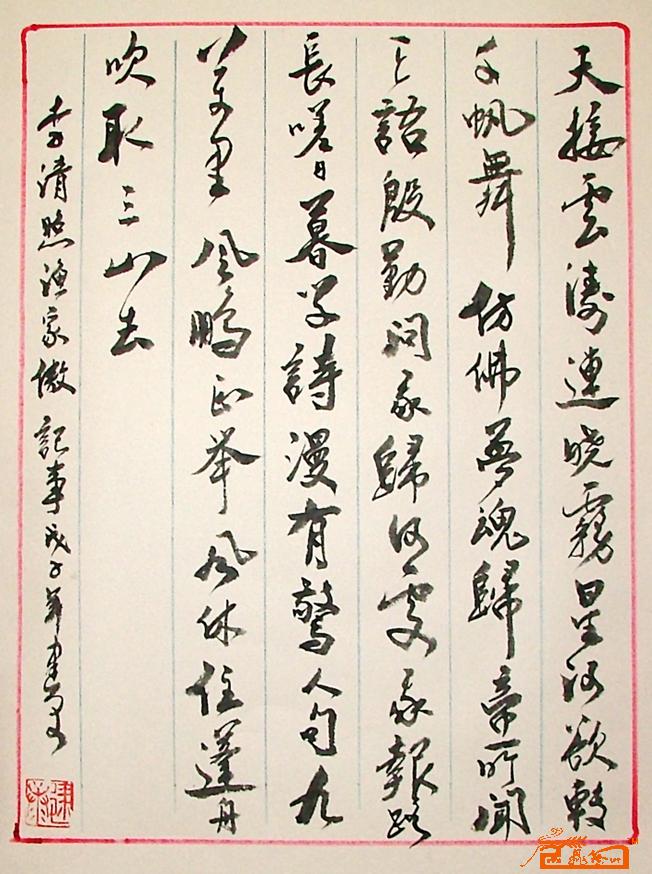 天接雲濤連晓霧星河欲轉
千帆舞仿佛夢魂歸帝所聞
天語殷勤問我歸何處我報路
長嗟日暮学詩漫有驚人句九
萬里風鵬正举風休住蓬舟
吹取三山去
李清照漁家傲記事戊子年建